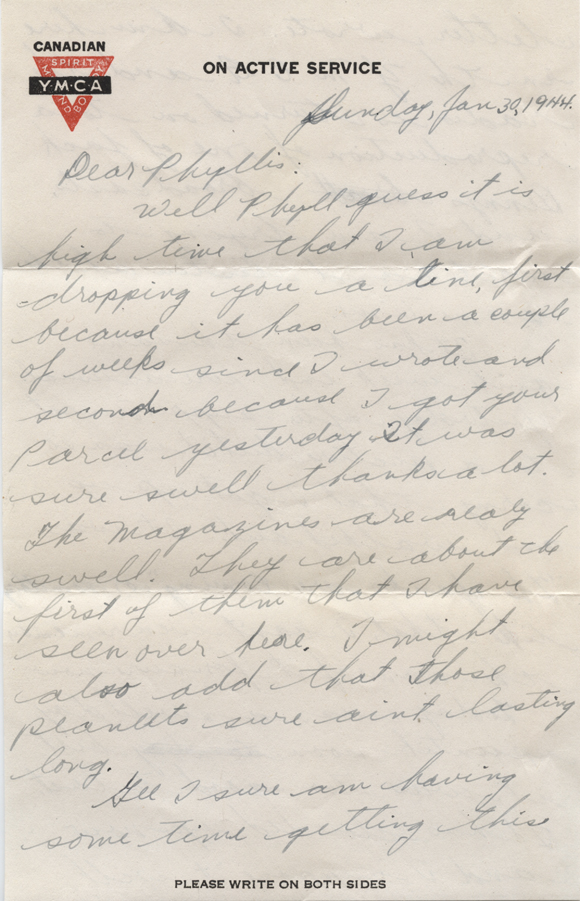 CANADIAN
SPIRIT
Y·M·C·A
MIND BODY
ON ACTIVE SERVICE
Sunday, Jan 30, 1944.
Dear Phyllis:
Well Phyll guess it is
high time that I am
dropping you a line, first
because it has been a couple
of weeks since I wrote and
second because I got your
Parcel yesterday It was
sure swell thanks a lot.
The Magazines are realy
swell. They are about the
first of them that I have
seen over here. I might
also add that those
peanuts sure aint lasting
long.
Gee I sure am having
some time getting this
PLEASE WRITE ON BOTH SIDES